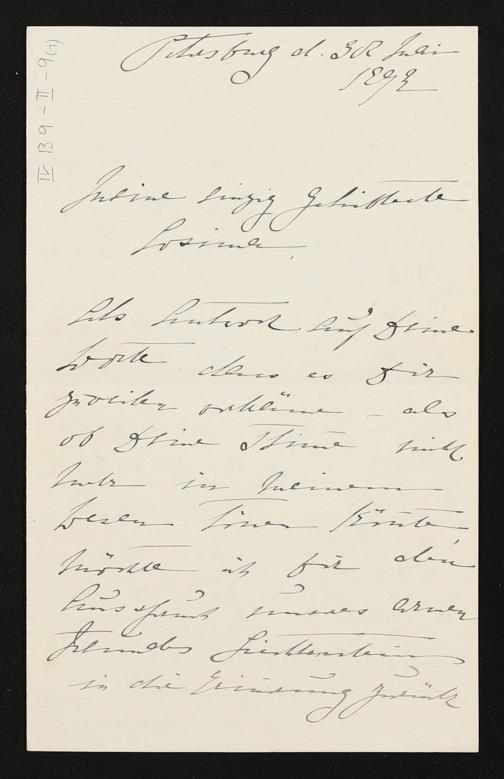 IV B 9 - II - 9 (1)
Petersburg d. 30 Juni
1892
Meine einzig Geliebteste
Cosima,
Als Antwort auf Deine
Worte dass es Dir
zuweilen erkläme - als
ob Deine Stimme nicht
mehr in meinem
Wesen tönen könnte
möchte ich Dir den
Ausspruch unseres armen
Freundes Liechtenstein
in die Erinnerung zurück